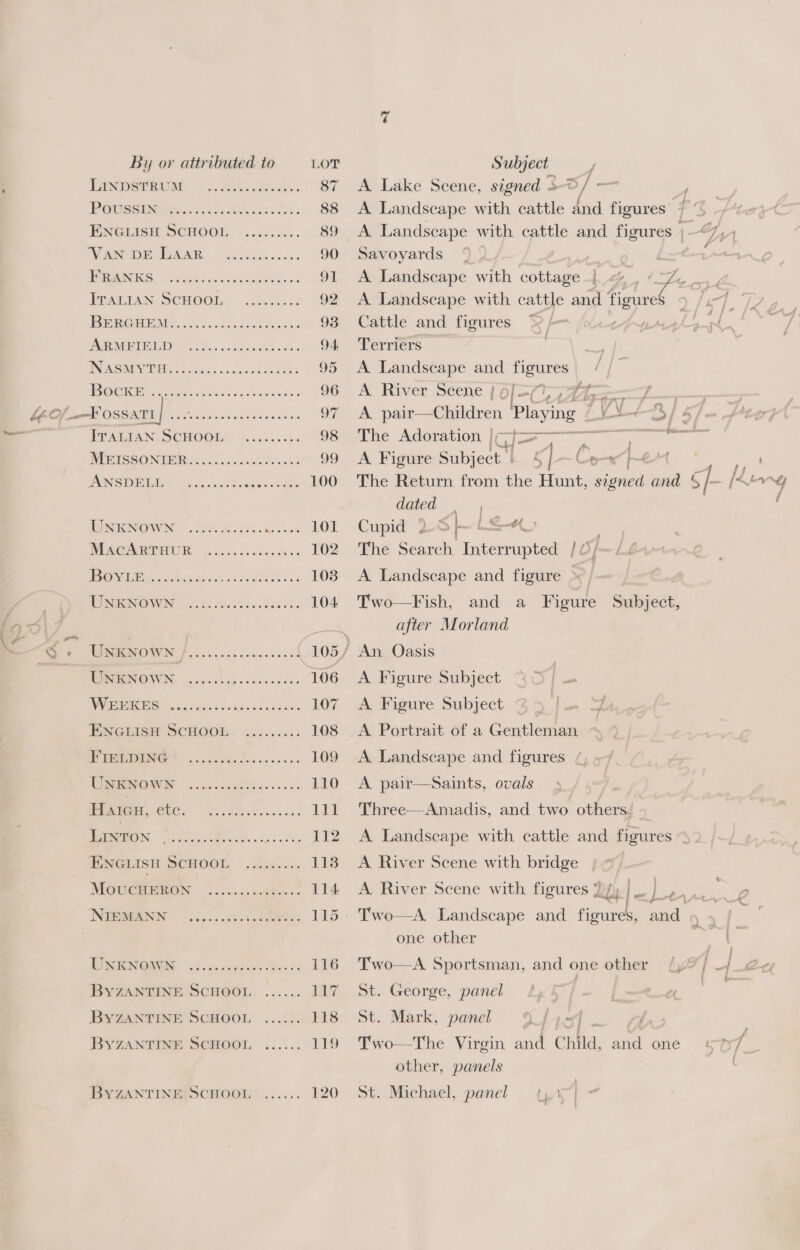 7
By or attributed to LOT Subject
LINDSTRUM ............ 87 A Lake Scene, signed
POUSSIN ............ 88 A Landscape with cattle and figures
ENGLISH SCHOOL ......... 89 A Landscape with cattle and figures
VAN DE LAAR ............ 90 Savoyards
FRANKS ............ 91 A Landscape with cottage
ITALIAN SCHOOL ......... 92 A Landscape with cattle and figures
BERGHEM ............ 93 Cattle and figures
ARMFIELD ............ 94 Terriers
NASMYTH ............ 95 A Landscape and figures
BOCKE ............ 96 A River Scene
FOSSATI ............ 97 A pair—Children Playing
ITALIAN SCHOOL ......... 98 The Adoration
MEISSONIER ............ 99 A Figure Subject
ANSDELL ............ 100 The Return from the Hunt, signed and
dated
UNKNOWN ............ 101 Cupid
MACARTHUR ............ 102 The Search Interrupted
BOYLE ............ 103 A Landscape and figure
UNKNOWN ............ 104 Two—Fish, and a Figure Subject,
after Morland
UNKNOWN ............ 105 An Oasis
UNKNOWN ............ 106 A Figure Subject
WEEKES ............ 107 A Figure Subject
ENGLISH SCHOOL ......... 108 A Portrait of a Gentleman
FIELDING ............ 109 A Landscape and figures
UNKNOWN ............ 110 A pair—Saints, ovals
HAIGH, etc. ............ 111 Three—Amadis, and two others
LINTON ............ 112 A Landscape with cattle and figures
ENGLISH SCHOOL ......... 113 A River Scene with bridge
MOUCHERON ............ 114 A River Scene with figures
NIEMANN ............ 115 Two—A Landscape and figures, and
one other
UNKNOWN ............ 116 Two—A Sportsman, and one other
BYZANTINE SCHOOL ...... 117 St. George, panel
BYZANTINE SCHOOL ...... 118 St. Mark, panel
BYZANTINE SCHOOL ...... 119 Two—The Virgin and Child, and one
other, panels
BYZANTINE SCHOOL ...... 120 St. Michael, panel